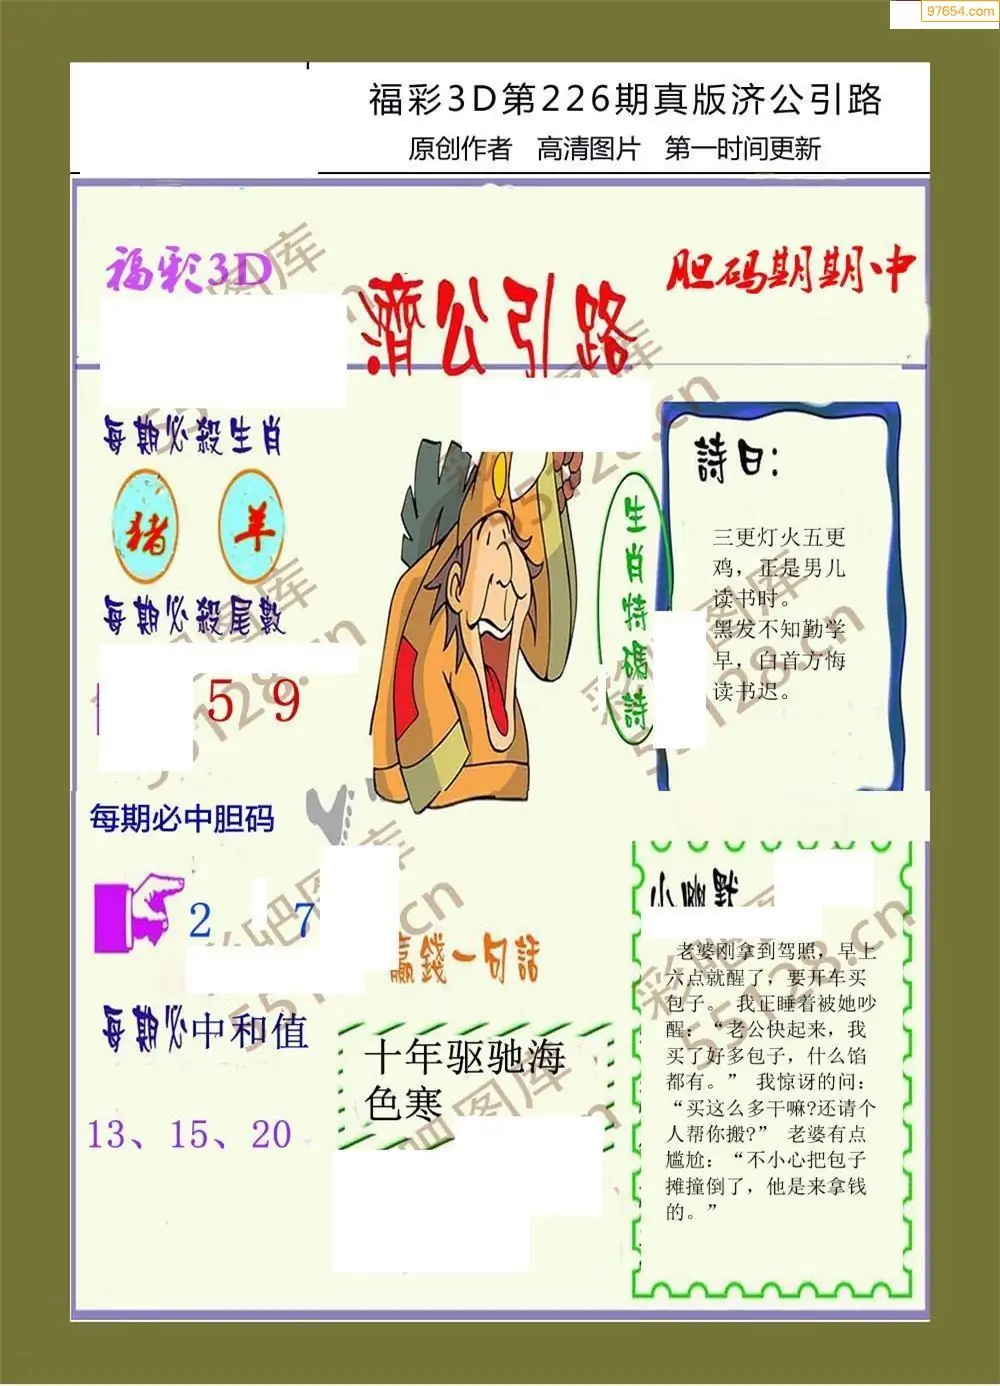 97654.com
福彩3D第226期真版济公引路
原创作者 高清图片 第一时间更新
福彩3D
胆码期期中
濟公引路
每期必殺生肖
猪 羊
每期必殺尾數
5 9
每期必中胆码
2 7
每期必中和值
13、15、20
生肖特碼詩
詩曰:
三更灯火五更
鸡，正是男儿
读书时。
黑发不知勤学
早，白首方悔
读书迟。
赢錢一句話
十年驱驰海
色寒
小幽默
老婆刚拿到驾照，早上
六点就醒了，要开车买
包子。 我正睡着被她吵
醒：“老公快起来，我
买了好多包子，什么馅
都有。” 我惊讶的问：
“买这么多干嘛?还请个
人帮你搬?” 老婆有点
尴尬：“不小心把包子
摊撞倒了，他是来拿钱
的。”
彩吧图库
55128.cn